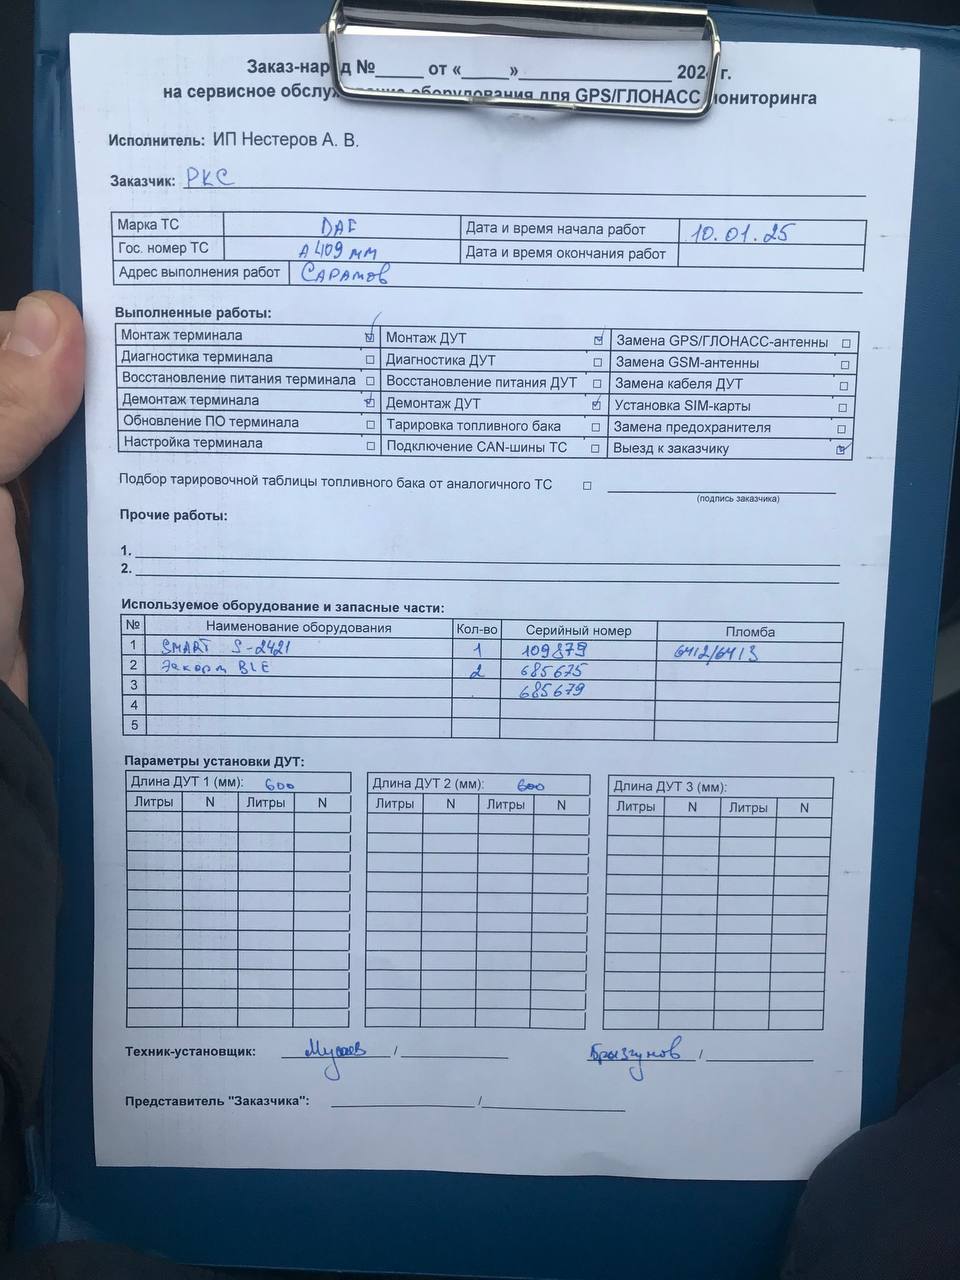 Заказ-наряд №_____ от «_____»________________ 202 г.
на сервисное обслуживание оборудования для GPS/ГЛОНАСС мониторинга
Исполнитель: ИП Нестеров А. В.
Заказчик: РКС
Марка ТС DAF Дата и время начала работ 10.01.25
Гос. номер ТС А409мм Дата и время окончания работ
Адрес выполнения работ Саратов
Выполненные работы:
Монтаж терминала ☑ Монтаж ДУТ ☑ Замена GPS/ГЛОНАСС-антенны ☐
Диагностика терминала ☐ Диагностика ДУТ ☐ Замена GSM-антенны ☐
Восстановление питания терминала ☐ Восстановление питания ДУТ ☐ Замена кабеля ДУТ ☐
Демонтаж терминала ☑ Демонтаж ДУТ ☑ Установка SIM-карты ☐
Обновление ПО терминала ☐ Тарировка топливного бака ☐ Замена предохранителя ☐
Настройка терминала ☐ Подключение CAN-шины ТС ☐ Выезд к заказчику ☑
Подбор тарировочной таблицы топливного бака от аналогичного ТС ☐
(подпись заказчика)
Прочие работы:
1.
2.
Используемое оборудование и запасные части:
№ Наименование оборудования Кол-во Серийный номер Пломба
1 SMART S-2421 1 109879 6412/6413
2 Эскорт BLE 2 685675
3 685679
4
5
Параметры установки ДУТ:
Длина ДУТ 1 (мм): 600 Длина ДУТ 2 (мм): 600 Длина ДУТ 3 (мм):
Литры N Литры N Литры N Литры N Литры N Литры N
Техник-установщик: Мусаев / Брызгунов /
Представитель "Заказчика": /